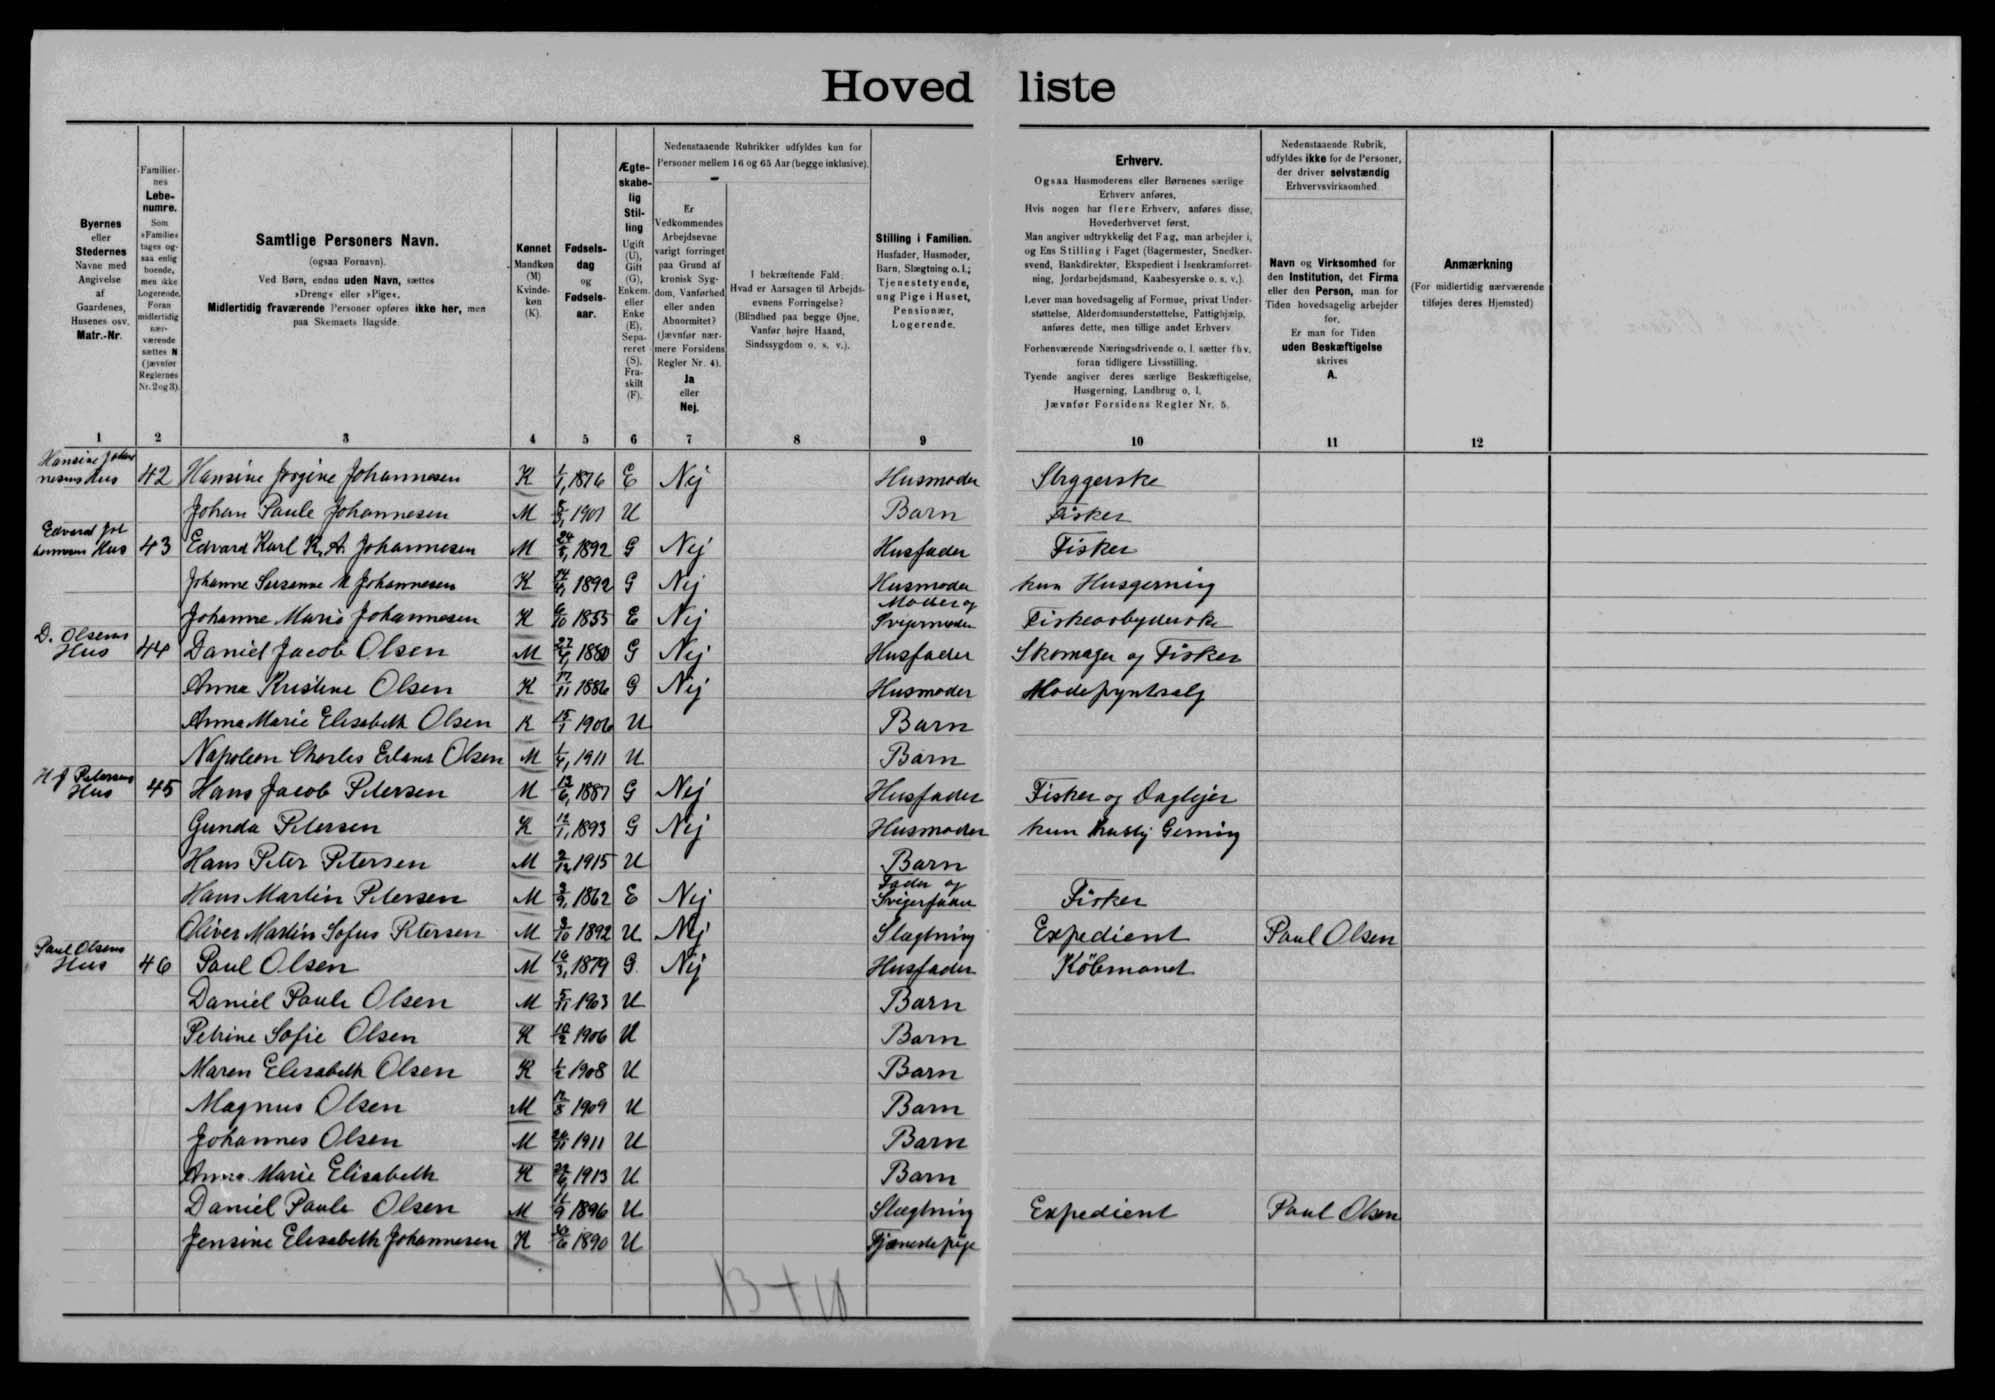 Hovedliste
Byernes
eller
Stedernes
Navne med
Angivelse
af
Gaardenes,
Husenes osv.
Matr.-Nr.
Familier-
nes
Løbe-
numre.
Som
»Familie«
tages og-
saa enlig
boende,
men ikke
Logerende.
Foran
midlertidig
nær-
værende
sættes N
(jævnfør
Reglernes
Nr. 2 og 3).
Samtlige Personers Navn.
(ogsaa Fornavn).
Ved Børn, endnu uden Navn, sættes
»Dreng« eller »Pige«.
Midlertidig fraværende Personer opføres ikke her, men
paa Skemaets Bagside.
Kønnet
Mandkøn
(M)
Kvinde-
køn
(K).
Fødsels-
dag
og
Fødsels-
aar.
Ægte-
skabe-
lig
Stil-
ling
Ugift
(U),
Gift
(G),
Enkem.
eller
Enke
(E),
Sepa-
reret
(S),
Fra-
skilt
(F).
Nedenstaaende Rubrikker udfyldes kun for
Personer mellem 16 og 65 Aar (begge inklusive).
Er
Vedkommendes
Arbejdsevne
varigt forringet
paa Grund af
kronisk Syg-
dom, Vanførhed
eller anden
Abnormitet?
(Jævnfør nær-
mere Forsidens
Regler Nr. 4).
Ja
eller
Nej.
I bekræftende Fald:
Hvad er Aarsagen til Arbejds-
evnens Forringelse?
(Blindhed paa begge Øjne,
Vanfør højre Haand,
Sindssygdom o. s. v.).
Stilling i Familien.
Husfader, Husmoder,
Barn, Slægtning o. l.;
Tjenestetyende,
ung Pige i Huset,
Pensionær,
Logerende.
Erhverv.
Ogsaa Husmoderens eller Børnenes særlige
Erhverv anføres,
Hvis nogen har flere Erhverv, anføres disse,
Hovederhvervet først.
Man angiver udtrykkelig det Fag, man arbejder i,
og Ens Stilling i Faget (Bagermester, Snedker-
svend, Bankdirektør, Ekspedient i Isenkramforret-
ning, Jordarbejdsmand, Kaabesyerske o. s. v.).
Lever man hovedsagelig af Formue, privat Under-
støttelse, Alderdomsunderstøttelse, Fattighjælp,
anføres dette, men tillige andet Erhverv
Forhenværende Næringsdrivende o. l. sætter fhv.
foran tidligere Livsstilling.
Tyende angiver deres særlige Beskæftigelse,
Husgerning, Landbrug o. l.
Jævnfør Forsidens Regler Nr. 5.
Nedenstaaende Rubrik,
udfyldes ikke for de Personer,
der driver selvstændig
Erhvervsvirksomhed.
Navn og Virksomhed for
den Institution, det Firma
eller den Person, man for
Tiden hovedsagelig arbejder
for.
Er man for Tiden
uden Beskæftigelse
skrives
A.
Anmærkning
(For midlertidig nærværende
tilføjes deres Hjemsted)
1 2 3 4 5 6 7 8 9 10 11 12
Hansine Johan
nesens Hus 42 Hansine Jrogine Johannesen K 1/1, 1876 E Nej Husmoder Stryggerske
Johan Paule Johannesen M 1901 U Barn Fisker
Edvard Joh
annesens Hus 43 Edvard Karl K. A. Johannesen M 1892 G Nej Husfader Fisker
Johanne Susanne M Johannesen K 1892 G Nej Husmoder kun Husgerning
Johanne Marie Johannesen K 6/10 1855 E Nej Moder og Svigermoder Fiskearbyderske
D. Olsens
Hus 44 Daniel Jacob Olsen M 1880 G Nej Husfader Skomager og Fisker
Anna Kristine Olsen K 17/11 1886 G Nej Husmoder Modepyntsalg
Anna Marie Elisabeth Olsen K 15/1 1906 U Barn
Napoleon Charles Erland Olsen M 1/4, 1911 U Barn
H J Petersens
Hus 45 Hans Jacob Petersen M 13/6, 1887 G Nej Husfader Fisker og Daglejer
Gunda Petersen K 12/1, 1893 G Nej Husmoder kun huslig Gerning
Hans Peter Petersen M 2/12, 1915 U Barn
Hans Martin Petersen M 3/9, 1862 E Nej Fader og Svigerfader Fisker
Oliver Martin Sofus Petersen M 3/10 1892 U Nej Slægtning Expedient Paul Olsen
Paul Olsens
Hus 46 Paul Olsen M 1879 G Nej Husfader Købmand
Daniel Paule Olsen M 5/11 1903 U Barn
Petrine Sofie Olsen K 1906 U Barn
Maren Elisabeth Olsen K 1/2 1908 U Barn
Magnus Olsen M 12/8 1909 U Barn
Johannes Olsen M 1911 U Barn
Anna Marie Elisabeth K 1913 U Barn
Daniel Paule Olsen M 11/9 1896 U Slægtning Expedient Paul Olsen
Jensine Elisabeth Johannesen K 1890 U Tjænestepige
13 + 10